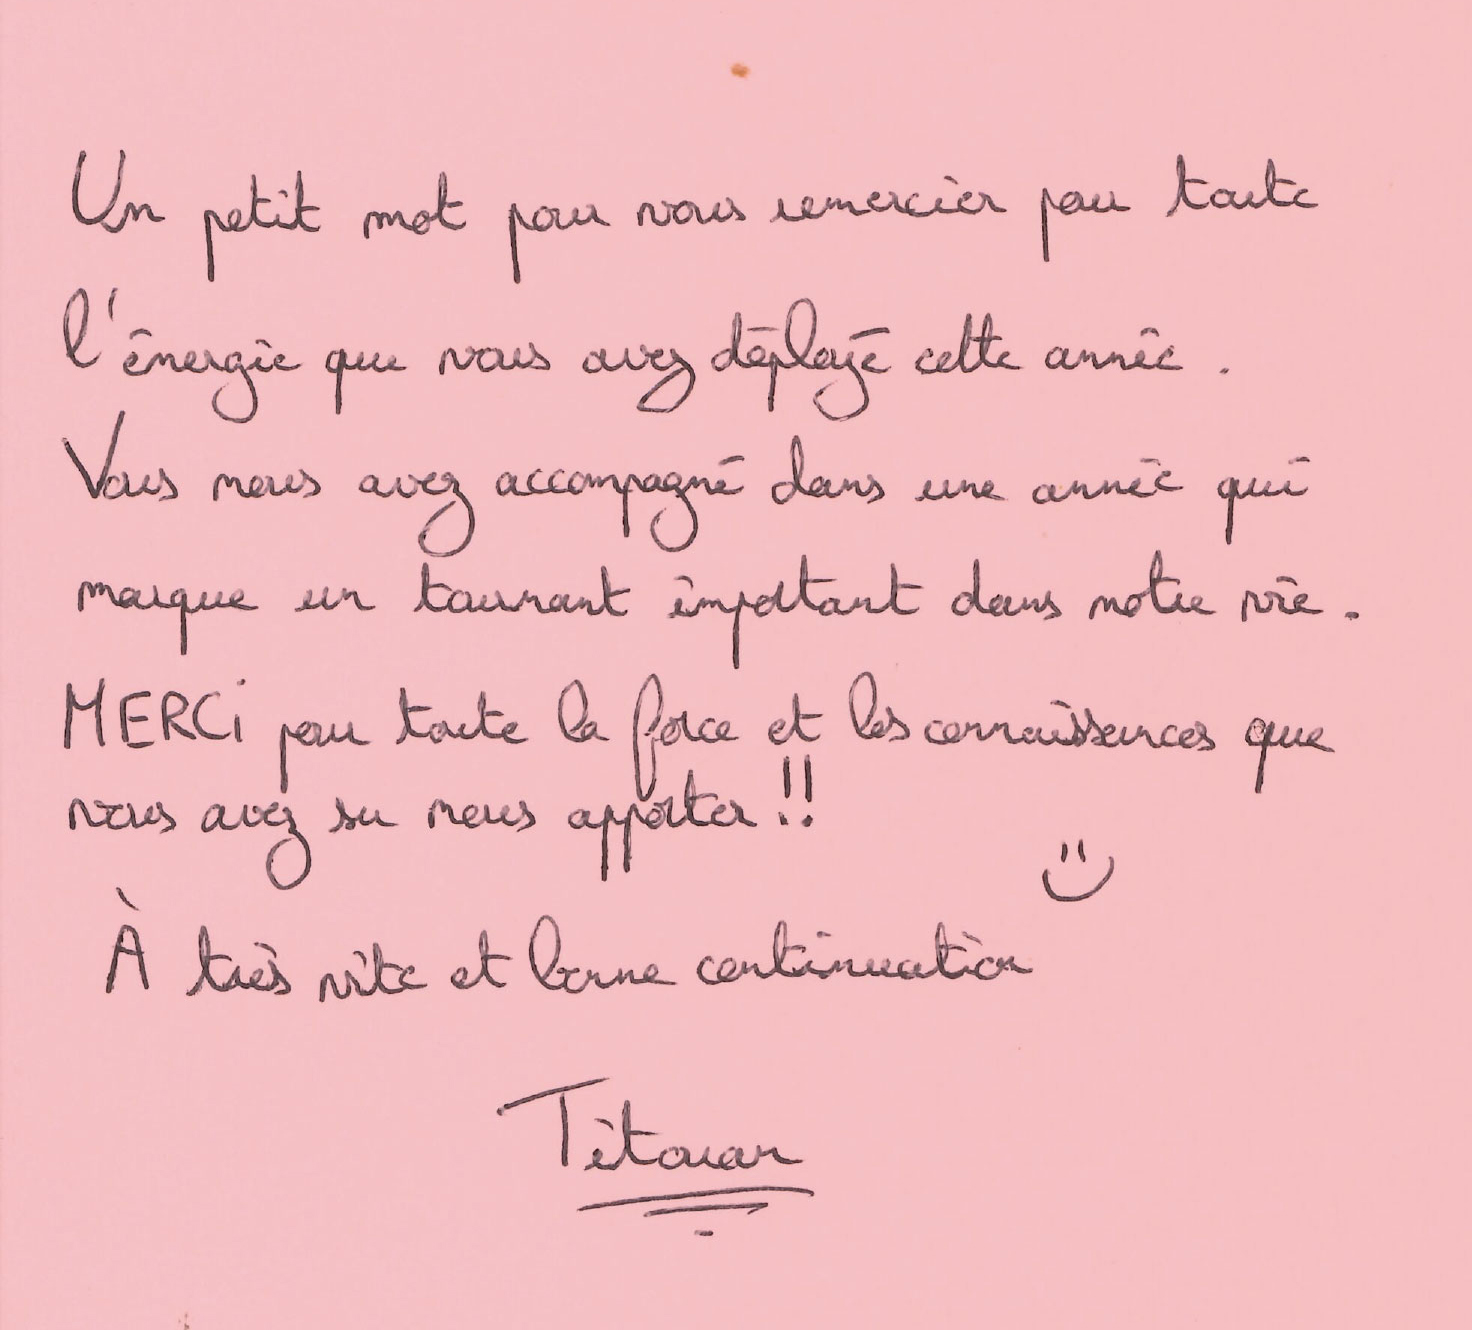 Un petit mot pour vous remercier pour toute
l'énergie que vous avez déployé cette année.
Vous nous avez accompagné dans une année qui
marque un tournant important dans notre vie.
MERCi pour toute la force et les connaissances que
vous avez su nous apporter !!
À très vite et bonne continuation
Titouan